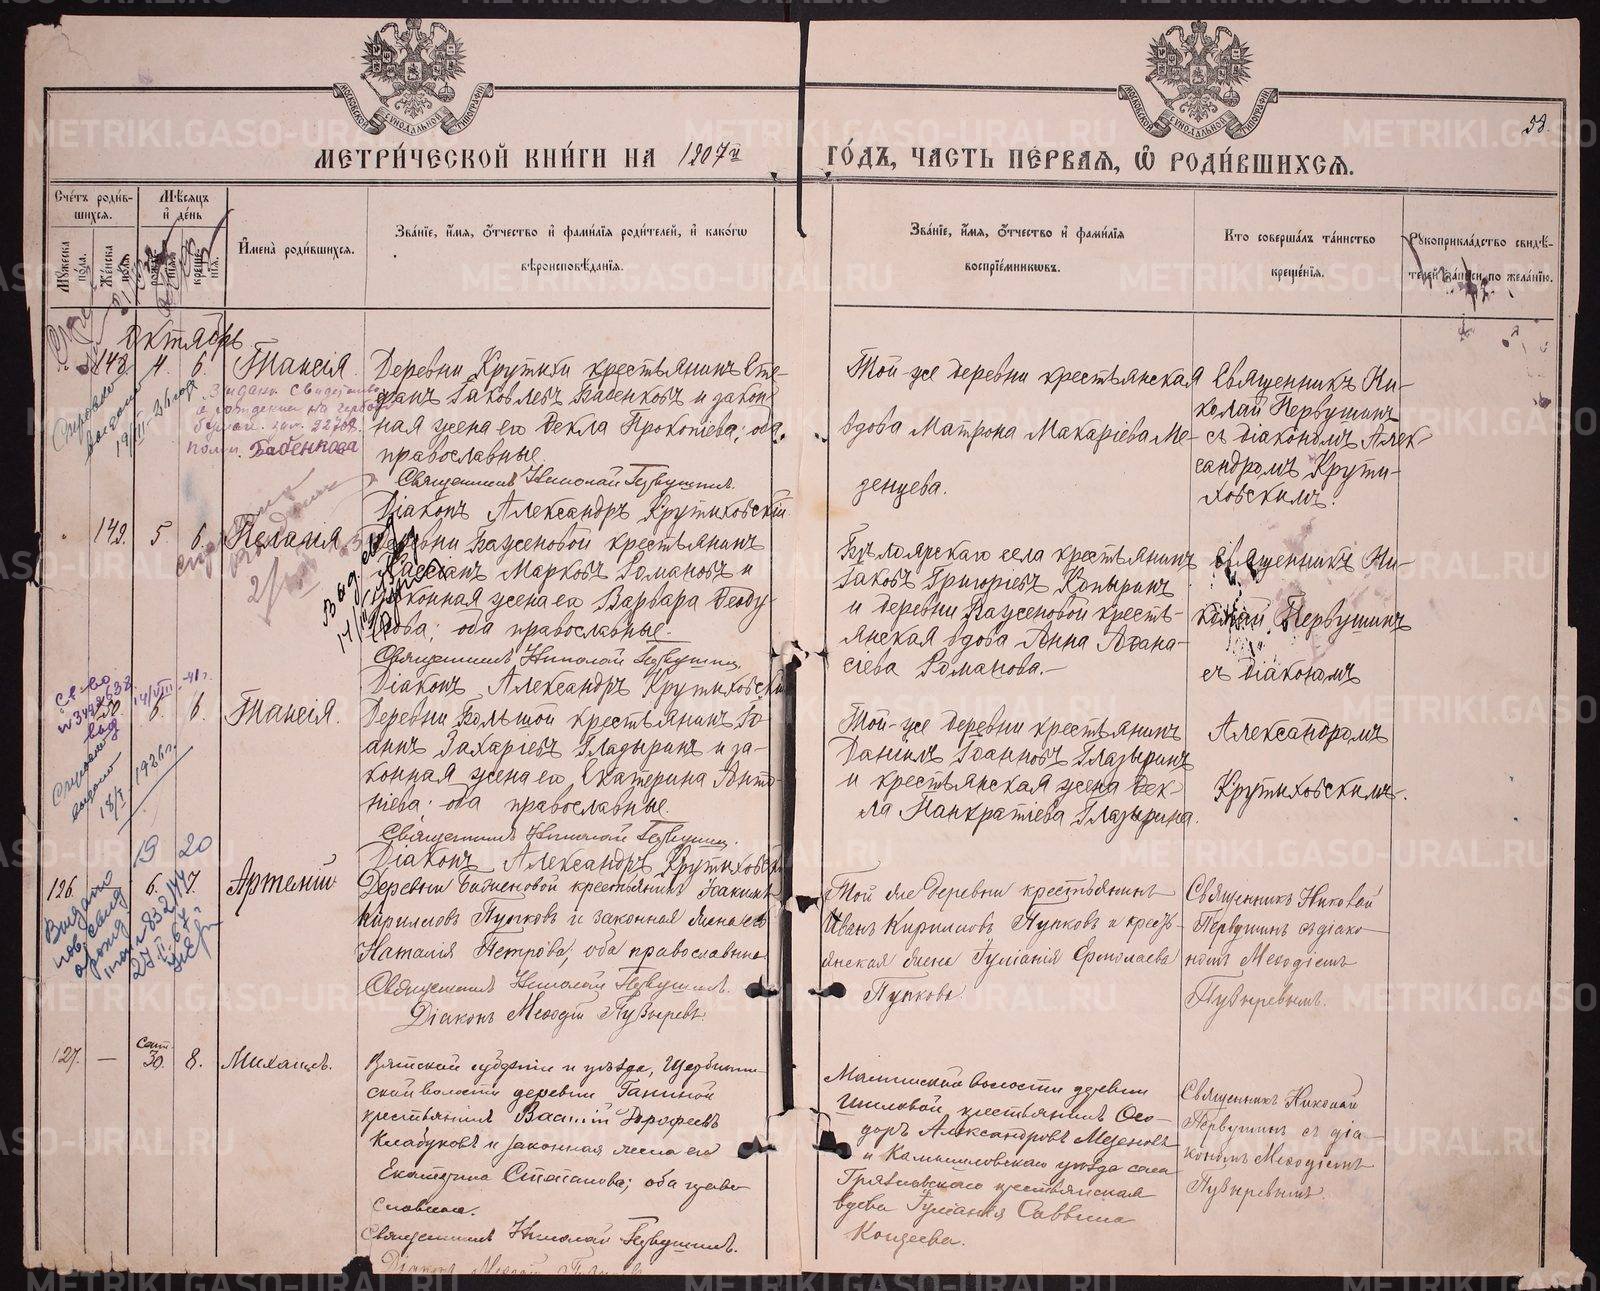 МЕТРИ́ЧЕСКОЙ КНИ́ГИ НА 1907й ГО́ДЪ, ЧАСТЬ ПЕ́РВАЯ, Ѿ РОДИ́ВШИХСЯ.
58.
Счетъ роди́вшихся.
Мужеска по́ла.
Же́нска по́ла.
Мѣсяцъ и́ де́нь
рожде́нія.
креще́нія.
И́мена̀ роди́вшихся.
Зва́нїе, и́мя, о́тчество и́ фами́лїя роди́телей, и́ како́гѡ
вѣроисповѣ́данїя.
Зва́нїе, и́мя, о́тчество и́ фами́лїя
воспрїе́мникѡвъ.
Кто соверша́лъ та́инство
креще́нїя.
Рукоприкла́дство свидѣ́-
телей за́писи по жела́нїю.
Октябрь
148. 4. 6. Таисія.
Деревни Крутихи крестьянинъ Сте-
фанъ Іаковлевъ Бабенковъ и закон-
ная жена его Ѳекла Прокопіева; оба
православные.
Священникъ Николай Первушинъ.
Діаконъ Александръ Крутиховскій
Той-же деревни крестьянская
вдова Матрона Макаріева Ме-
денцева.
Священникъ Ни-
колай Первушинъ
съ діакономъ Алек-
сандромъ Крути-
ховскимъ.
Бабенкова
149. 5. 6. Пелагія
Деревни Баженовой крестьянинъ
Кассіанъ Марковъ Романовъ и
законная жена его Варвара Ѳеоду-
лова; оба православные.
Священникъ Николай Первушинъ
Діаконъ Александръ Крутиховскій
Бѣлоярскаго села крестьянинъ
Іаковъ Григорьевъ Копыринъ
и деревни Баженовой кресть-
янская вдова Анна Аѳана-
сіева Романова.
Священникъ Ни-
колай Первушинъ
съ діакономъ
Александромъ
Крутиховскимъ.
150. 6. 6. Таисія.
Деревни Большой крестьянинъ Іо-
аннъ Захаріевъ Гладыринъ и за-
конная жена его Екатерина Анто-
ніева; оба православные.
Священникъ Николай Первушинъ.
Діаконъ Александръ Крутиховскій
Той-же деревни крестьянинъ
Даніилъ Іоанновъ Глазыринъ
и крестьянская жена Ѳек-
ла Панкратіева Глазырина.
18/I 1926 г.
19 20
126. 6. 7. Артемій
Деревни Баженовой крестьянинъ Іакинъ
Кирилловъ Пупковъ и законная жена его
Наталія Петрова, оба православные
Священникъ Николай Первушинъ.
Діаконъ Меѳодій Пузыревъ.
Той же деревни крестьянинъ
Иванъ Кирилловъ Пупковъ и кресть-
янская жена Іуліанія Ермолаева
Пупкова.
Священникъ Николай
Первушинъ съ діако-
номъ Меѳодіемъ
Пузыревымъ.
127. — Сент. 30. 8. Михаилъ.
Вятской губерніи и уѣзда,
ской волости деревни Ганиной
крестьянинъ Василій Дороѳеевъ
Кладуковъ и законная жена его
Екатерина Стефанова; оба право-
славные.
Священникъ Николай Первушинъ.
Діаконъ Меѳодій Пузыревъ
волости деревни
Шиловой крестьянинъ Ѳео-
доръ Александровъ Мезеновъ
и Камышловскаго уѣзда села
Грязновскаго крестьянская
вдова Іуліанія Саввина
Кощеева.
Священникъ Николай
Первушинъ съ діа-
кономъ Меѳодіемъ
Пузыревымъ.
METRIKI.GASO-URAL.RU